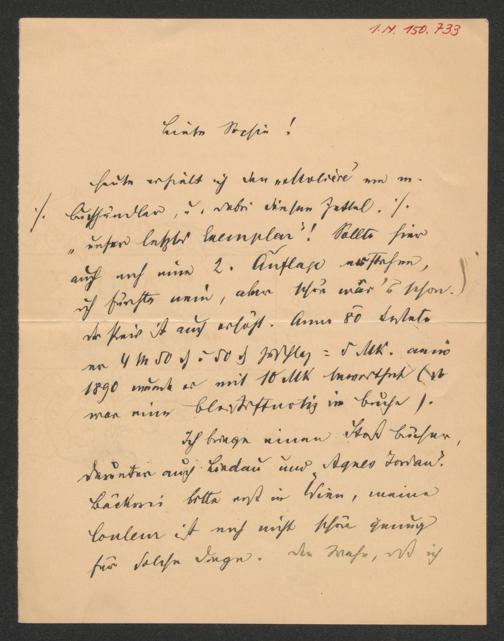 I.N. 150.733
Liebe Sophie!
Heute erhielt ich den "Molière" von m.
Buchhändler, u. dabei diesen Zettel. ·/.
"unser letztes Exemplar"! Sollte hier
auch noch eine 2. Auflage entstehen,
ich fürchte nein, aber schön wär's schon.
der Preis ist auch erhöht. Anno 80 kostete
er 4 M 50 d + 50 d = 5 Mk. anno
1890 wurde er mit 10 Mk bewerthet (es
war eine Bleistiftnotiz im Buche).
Ich bringe einen Stoß Bücher,
darunter auch Lindau und "Agnes Jordan".
bitte erst in Wien, meine
Couleur ist noch nicht schön genug
für solche Dinge. ich